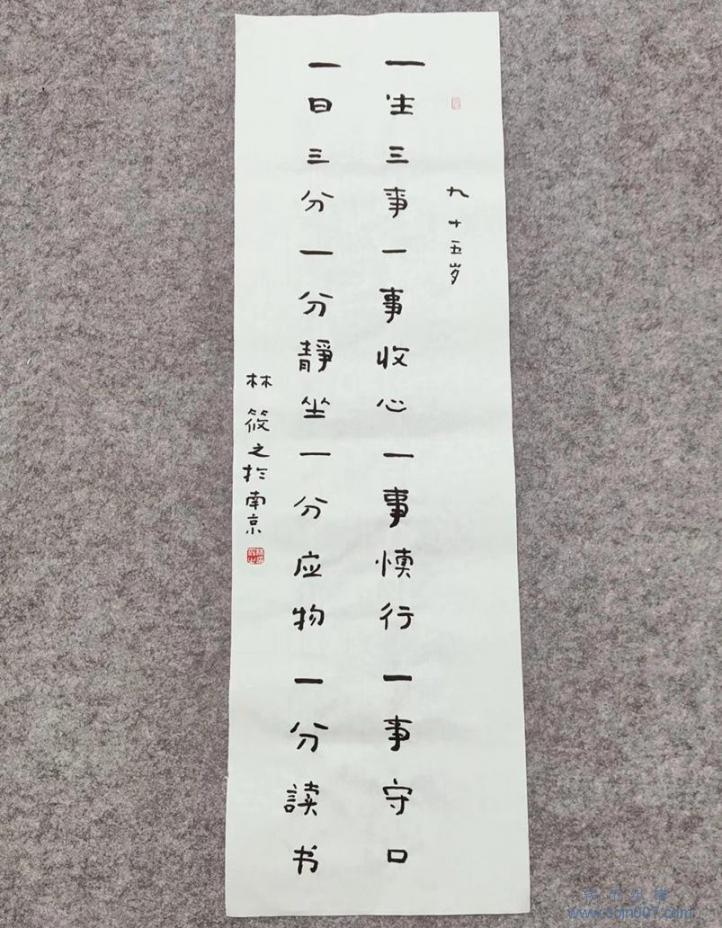 九十五岁
一生三事一事收心一事慎行一事守口
一日三分一分靜坐一分应物一分读书
林筱之於南京